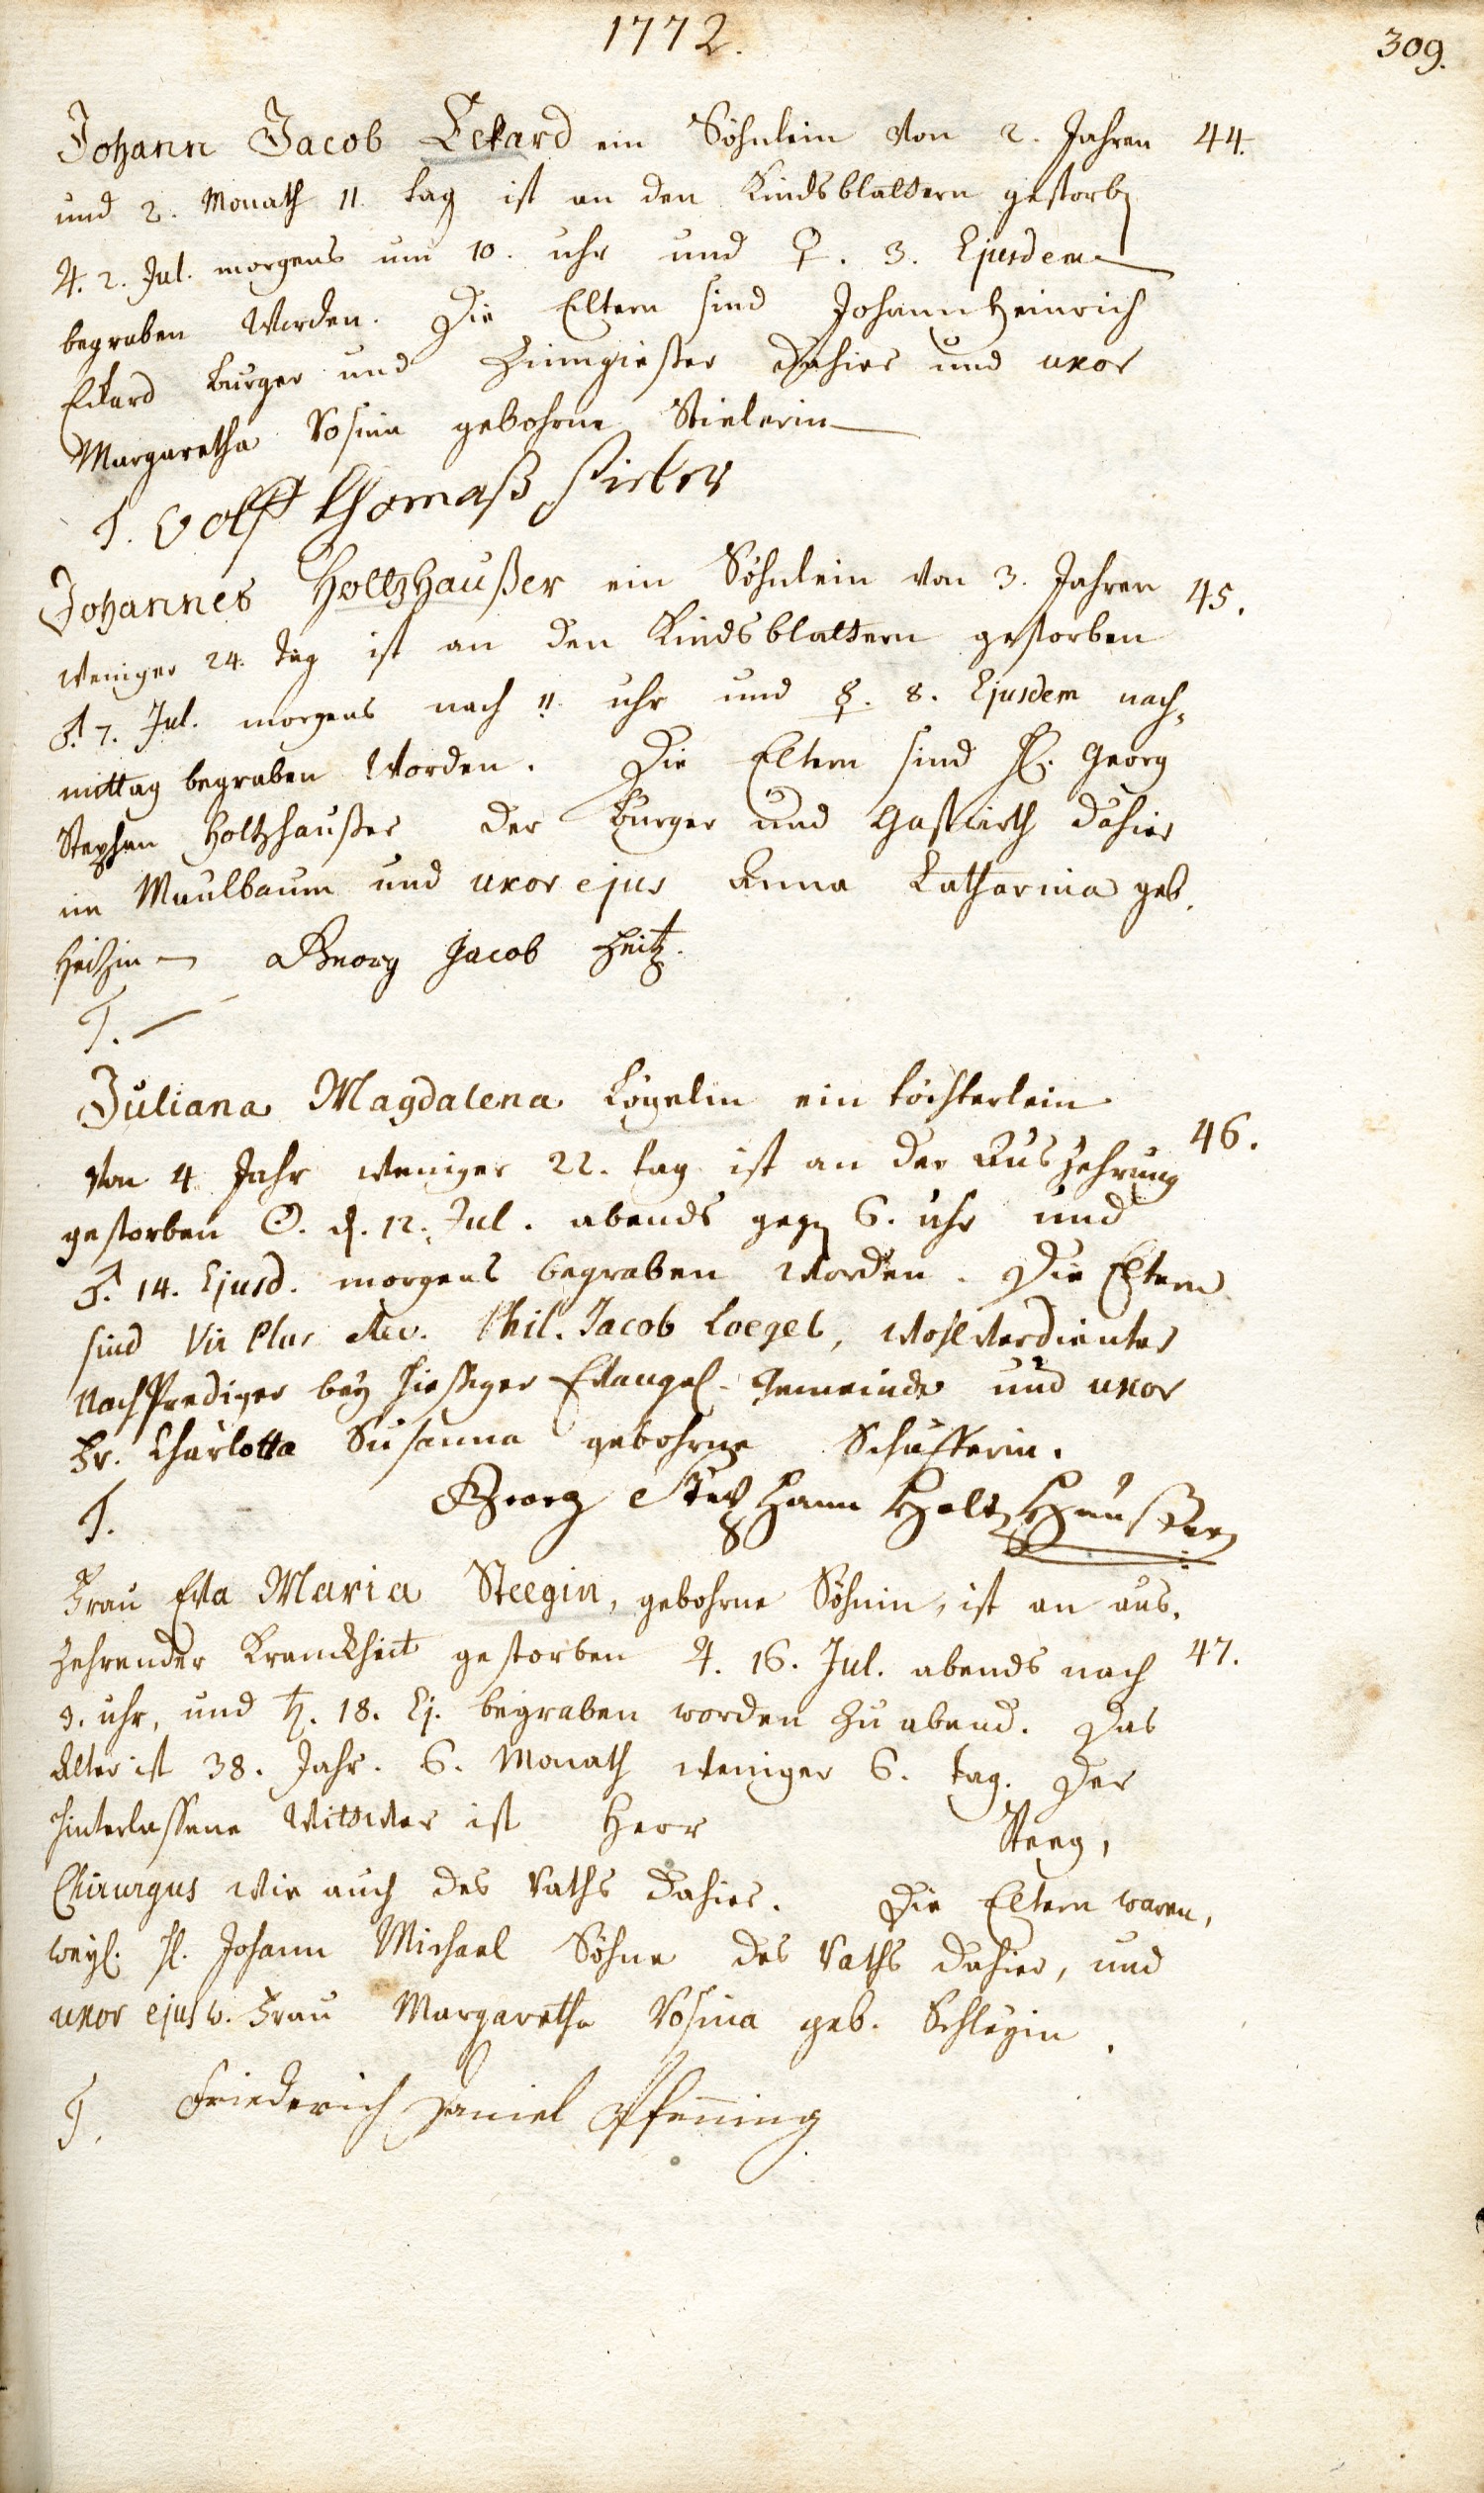 1772.
309.
Johann Jacob Eckard ein Söhnlein von 2. Jahren 44.
und 2. Monath 11. tag ist an den Kindsblattern gestorbē
♃. 2. Jul. morgens um 10. uhr und ♀. 3. Ejusdem
begraben worden. Die Eltern sind Johann Heinrich
Eckard burger und Zinngießer dahier und uxor
Margaretha Rosina gebohrne Stielerin
T. Volff thomaß
Johannes Holtzhaußer ein Söhnlein von 3. Jahren 45.
weniger 24. tag ist an den Kindsblattern gestorben
♂. 7. Jul. morgens nach 11. uhr und ☿. 8. Ejusdem nach-
mittag begraben worden. Die Eltern sind H. Georg
Stephan Holtzhaußer der burger und Gastwirth dahier
im Maulbaum und uxor ejus Anna Catharina geb.
Heitzin Georg Jacob Heitz.
T.
Juliana Magdalena Lögelin ein töchterlein
von 4 Jahr weniger 22. tag ist an der Auszehrung 46.
gestorben ☉. d. 12. Jul. abends gegē 6. uhr und
♂. 14. Ejusd. morgens begraben worden. Die Eltern
sind Vir Plur. Rev. Phil. Jacob Loegel, wohlverdienter
Nachprediger bey hießiger Evangel. Gemeinde und uxor
Fr. Charlotta Susanna gebohrne Schäfferin.
T. Georg Stephann Holtzhaußer
Frau Eva Maria Steegin, gebohrne Söhnin, ist an aus-
zehrender Kranckheit gestorben ♃. 16. Jul. abends nach 47.
9. uhr, und ♄. 18. Ej. begraben worden zu abend. Das
Alter ist 38. Jahr. 6. Monath weniger 6. tag. Der
hinterlassene Wittwer ist Herr Steeg,
Chirurgus wie auch des Raths dahier. Die Eltern waren,
weyl. H. Johann Michael Söhne des Raths dahier, und
uxor ejus w. Frau Margaretha Rosina geb. Schlegin.
T. Friederich Daniel Pfeñing